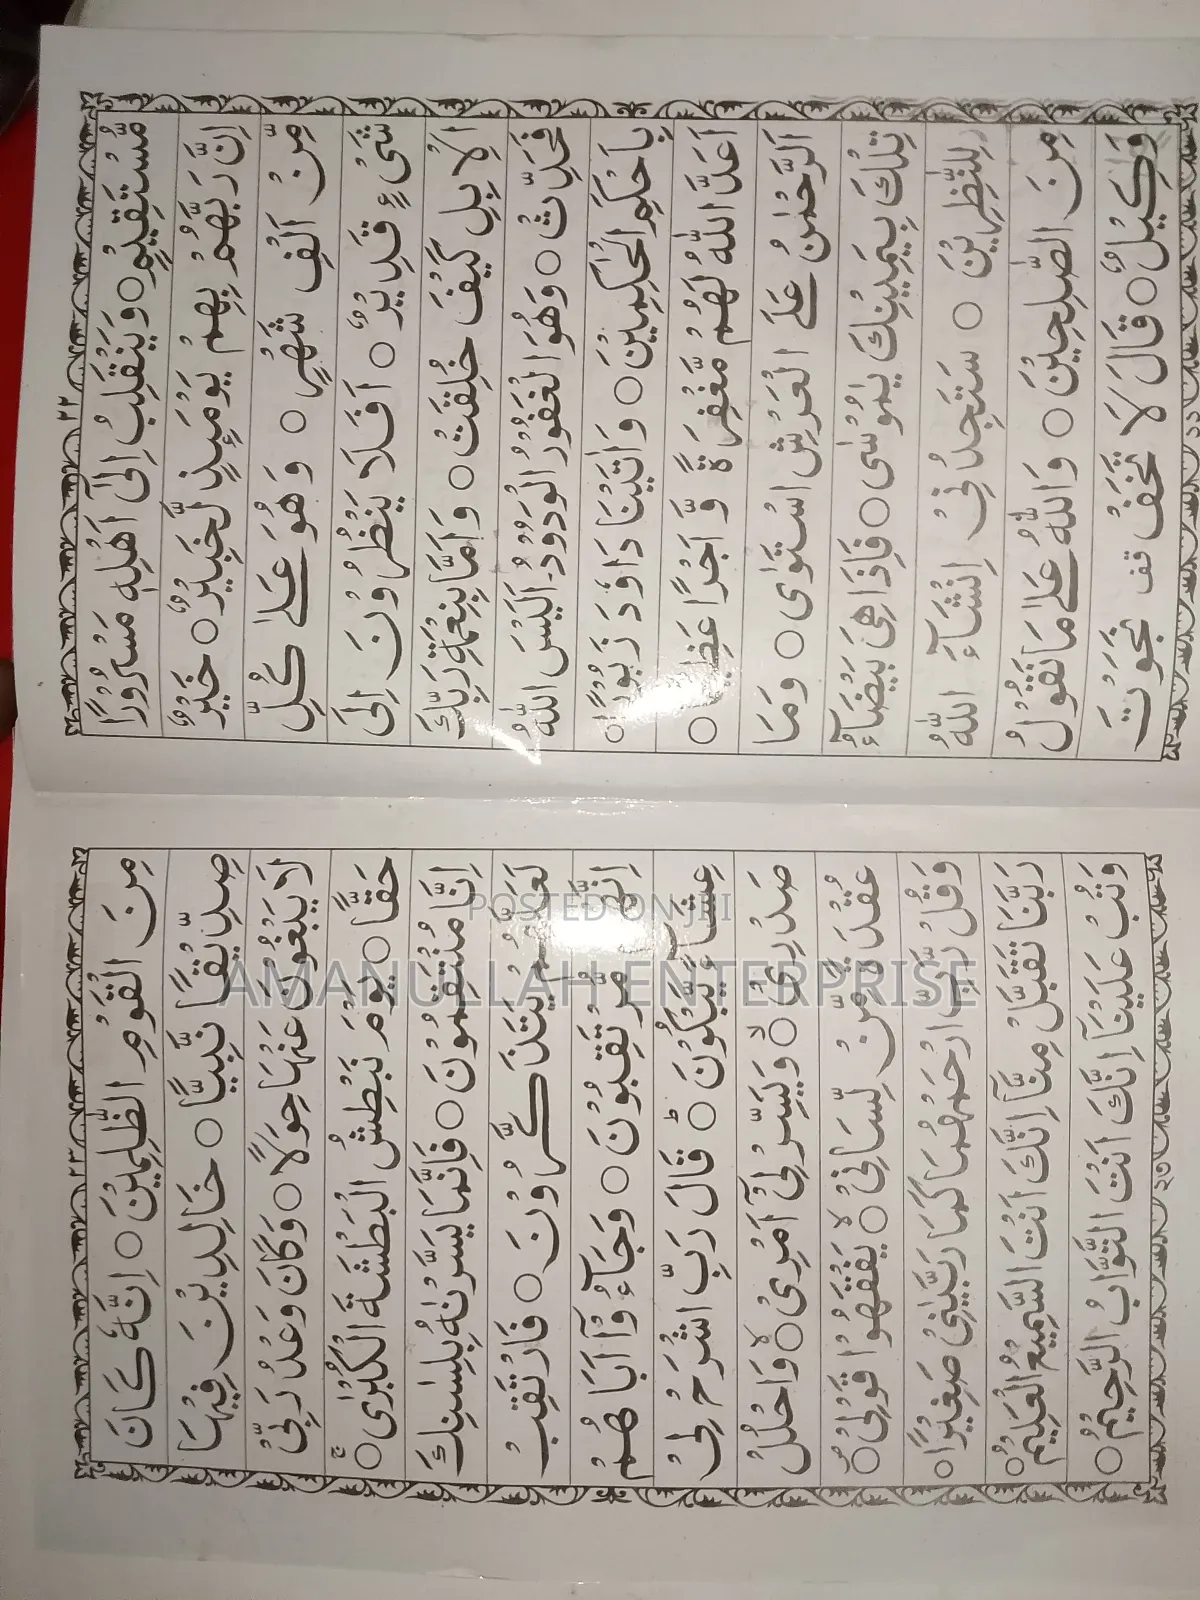 ۲۲
مُّسْتَقِيْمٍ ○ وَيَنْقَلِبُ اِلٰٓى اَهْلِهٖ مَسْرُوْرًا
اِنَّ رَبَّهُمْ بِهِمْ يَوْمَئِذٍ لَّخَبِيْرٌ ○ خَيْرٌ
مِّنْ اَلْفِ شَهْرٍ ○ وَهُوَ عَلٰى كُلِّ
شَىْءٍ قَدِيْرٌ ○ اَفَلَا يَنْظُرُوْنَ اِلَى
الْاِبِلِ كَيْفَ خُلِقَتْ ○ وَاَمَّا بِنِعْمَةِ رَبِّكَ
فَحَدِّثْ ○ وَهُوَ الْغَفُوْرُ الْوَدُوْدُ۔ اَلَيْسَ اللّٰهُ
بِاَحْكَمِ الْحٰكِمِيْنَ ○ وَاٰتَيْنَا دَاوٗدَ زَبُوْرًا ○
اَعَدَّ اللّٰهُ لَهُمْ مَّغْفِرَةً وَّاَجْرًا عَظِيْمًا ○
اَلرَّحْمٰنُ عَلَى الْعَرْشِ اسْتَوٰى ○ وَمَا
تِلْكَ بِيَمِيْنِكَ يٰمُوْسٰى ○ فَاِذَا هِىَ بَيْضَآءُ
لِلنّٰظِرِيْنَ ○ سَتَجِدُنِىْ اِنْشَآءَ اللّٰهُ
مِنَ الصّٰلِحِيْنَ ○ وَاللّٰهُ عَلٰى مَا نَقُوْلُ
وَكِيْلٌ ○ قَالَ لَا تَخَفْ قف نَجَوْتَ
۲۳
مِنَ الْقَوْمِ الظّٰلِمِيْنَ ○ اِنَّهٗ كَانَ
صِدِّيْقًا نَّبِيًّا ○ خَالِدِيْنَ فِيْهَا
لَا يَبْغُوْنَ عَنْهَا حِوَلًا ○ وَكَانَ وَعْدُ رَبِّىْ
حَقًّا ○ يَوْمَ نَبْطِشُ الْبَطْشَةَ الْكُبْرٰى ○
اِنَّا مُنْتَقِمُوْنَ ○ فَاِنَّمَا يَسَّرْنٰهُ بِلِسٰنِكَ
لَعَلَّهُمْ يَتَذَكَّرُوْنَ ○ فَارْتَقِبْ
اِنَّهُمْ مُّرْتَقِبُوْنَ ○ وَجَآءُوْٓا اَبَاهُمْ
عِشَآءً يَّبْكُوْنَ ○ قَالَ رَبِّ اشْرَحْ لِىْ
صَدْرِىْ ○ وَيَسِّرْ لِىْٓ اَمْرِىْ ○ وَاحْلُلْ
عُقْدَةً مِّنْ لِّسَانِىْ ○ يَفْقَهُوْا قَوْلِىْ ○
وَقُلْ رَّبِّ ارْحَمْهُمَا كَمَا رَبَّيٰنِىْ صَغِيْرًا ○
رَبَّنَا تَقَبَّلْ مِنَّآ اِنَّكَ اَنْتَ السَّمِيْعُ الْعَلِيْمُ ○
وَتُبْ عَلَيْنَآ اِنَّكَ اَنْتَ التَّوَّابُ الرَّحِيْمُ ○
POSTED ON JIJI
AMANULLAH ENTERPRISE